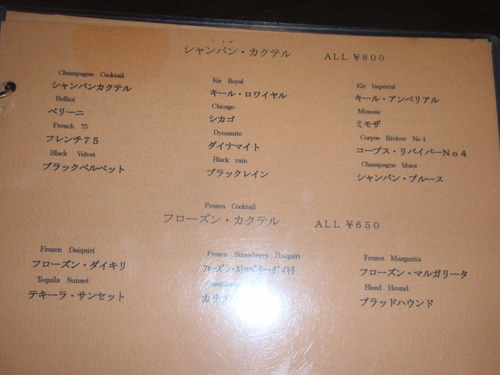 シャンパン・カクテル ALL ¥800
Champagne Cocktail Kir Royal Kir Imperial
シャンパンカクテル キール・ロワイヤル キール・アンペリアル
Bellini Chicago Mimosa
ベリーニ シカゴ ミモザ
French 75 Dynamite Corpse Riviver No4
フレンチ75 ダイナマイト コープス・リバイバーNo4
Black Velvet Black rain Champagne blues
ブラックベルベット ブラックレイン シャンパン・ブルース
Frozen Cocktail
フローズン・カクテル ALL ¥650
Frozen Daiquiri Frozen Strawberry Daiquiri Frozen Margarita
フローズン・ダイキリ フローズン・ストロベリー・ダイキリ フローズン・マルガリータ
Tequila Sunset Blood Hound
テキーラ・サンセット カサブ ブラッドハウンド